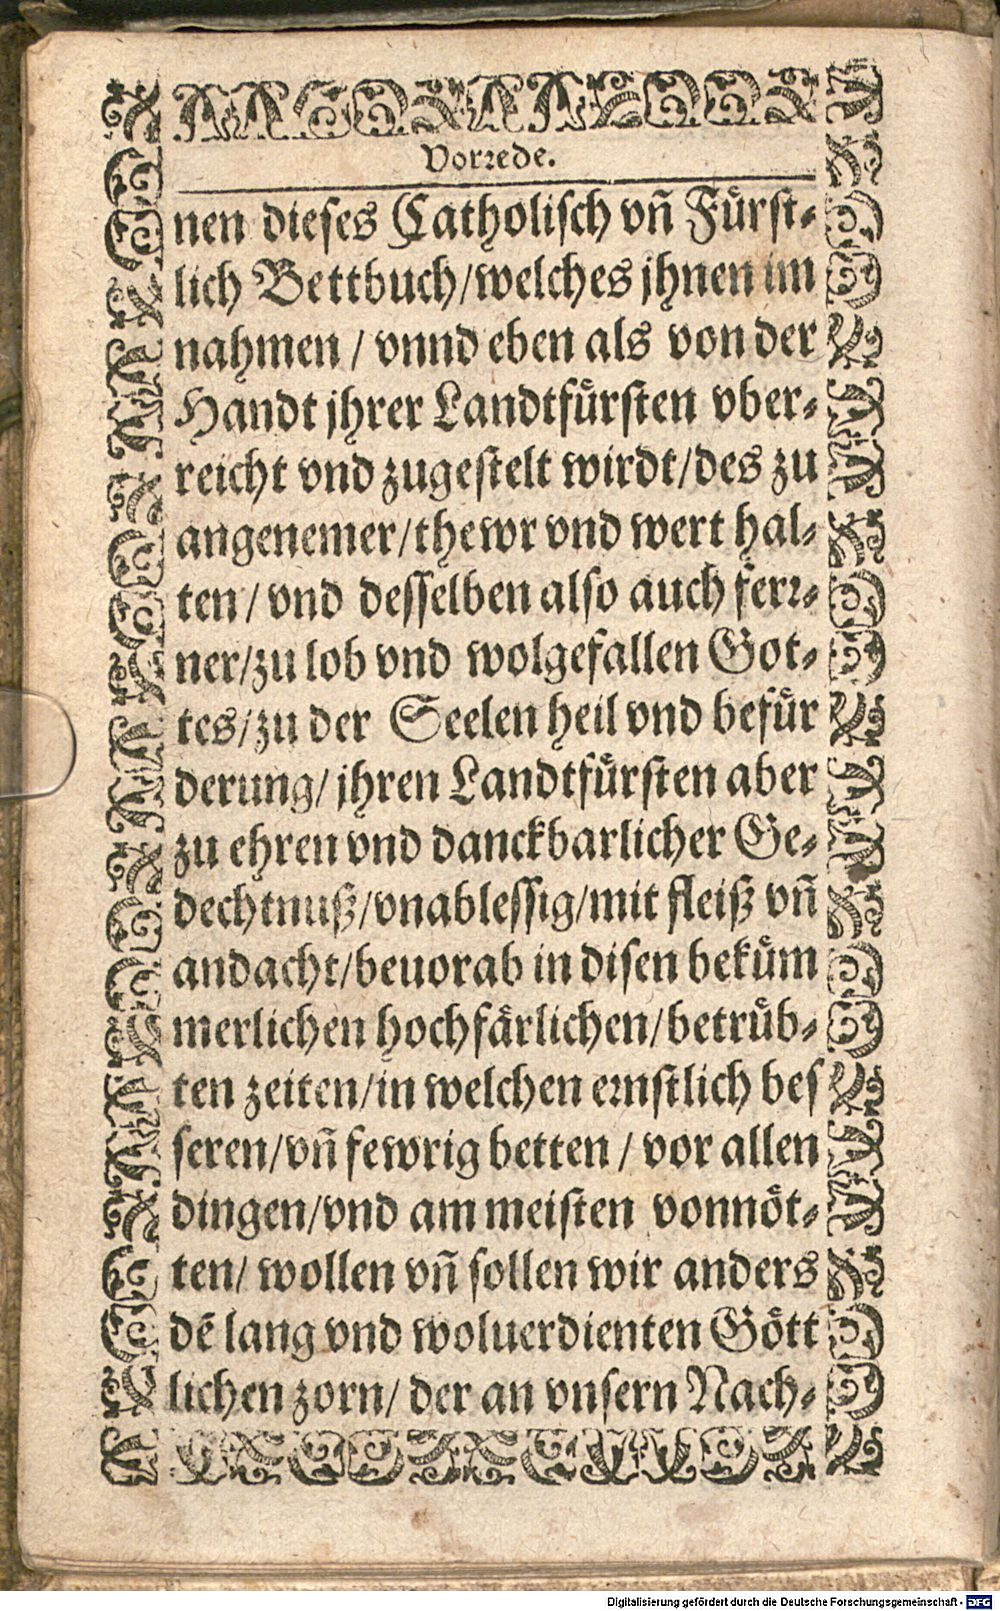 Vorꝛede.
nen dieſes Catholiſch vñ Fuͤrſt⸗
lich Bettbuch/welches jhnen im
nahmen / vnnd eben als von der
Handt jhrer Landtfuͤrſten vber⸗
reicht vnd zugeſtelt wirdt/des zu
angenemer/thewr vnd wert hal⸗
ten / vnd deſſelben alſo auch ferꝛ⸗
ner/zu lob vnd wolgefallen Got⸗
tes/zu der Seelen heil vnd befuͤr
derung/ jhren Landtfuͤrſten aber
zu ehren vnd danckbarlicher Ge⸗
dechtnuß/vnableſſig/mit fleiß vñ
andacht/beuorab in diſen bekuͤm
merlichen hochfaͤrlichen/betruͤb⸗
ten zeiten/in welchen ernſtlich beſ
ſeren/vñ fewrig betten / vor allen
dingen/vnd am meiſten vonnoͤt⸗
ten/ wollen vñ ſollen wir anders
dẽ lang vnd woluerdienten Goͤtt
lichen zorn/ der an vnſern Nach⸗
Digitalisierung gefördert durch die Deutsche Forschungsgemeinschaft - DFG